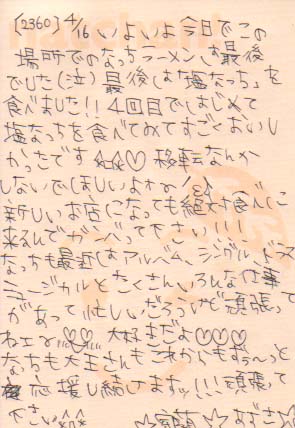 ［2360］4/16 いよいよ今日でこの
場所でのなっちラーメンは最後
でした(泣) 最後は"塩なっち"を
食べました!! 4回目ではじめて
塩なっちを食べてみてすごくおいし
かったです☆☆♡ 移転なんか
しないでほしいよォ
新しいお店になっても絶対食べに
来るんでがんばって下さい!!!
なっちも最近はアルバム、シングル、
ミュージカルとたくさんいろんな仕事
があって忙しいだろうけど頑張って
ねェ 大好きだよ♡♡♡
なっちも大王さんもこれからもずぅーっと
応援し続けますッ!!! 頑張って
下さい